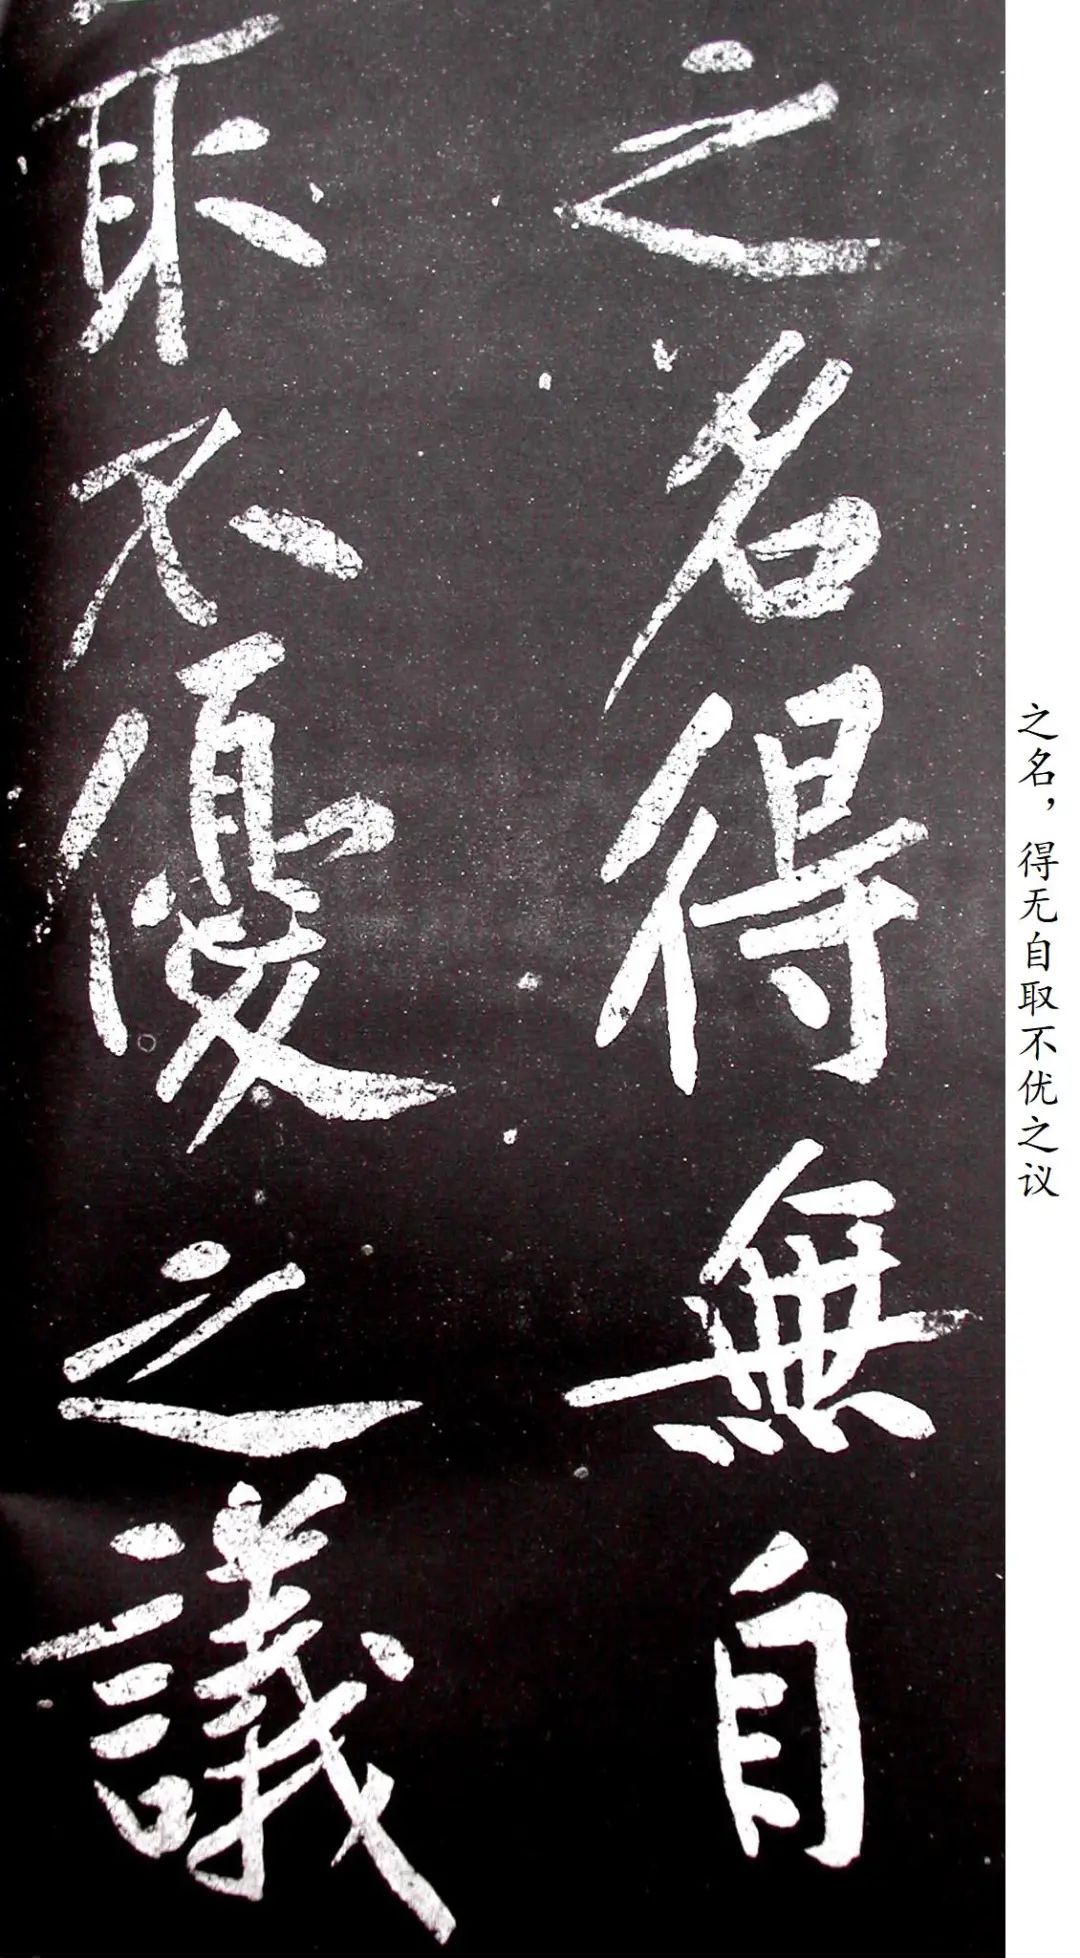 之名得無自
取不優之議
之名，得无自取不优之议